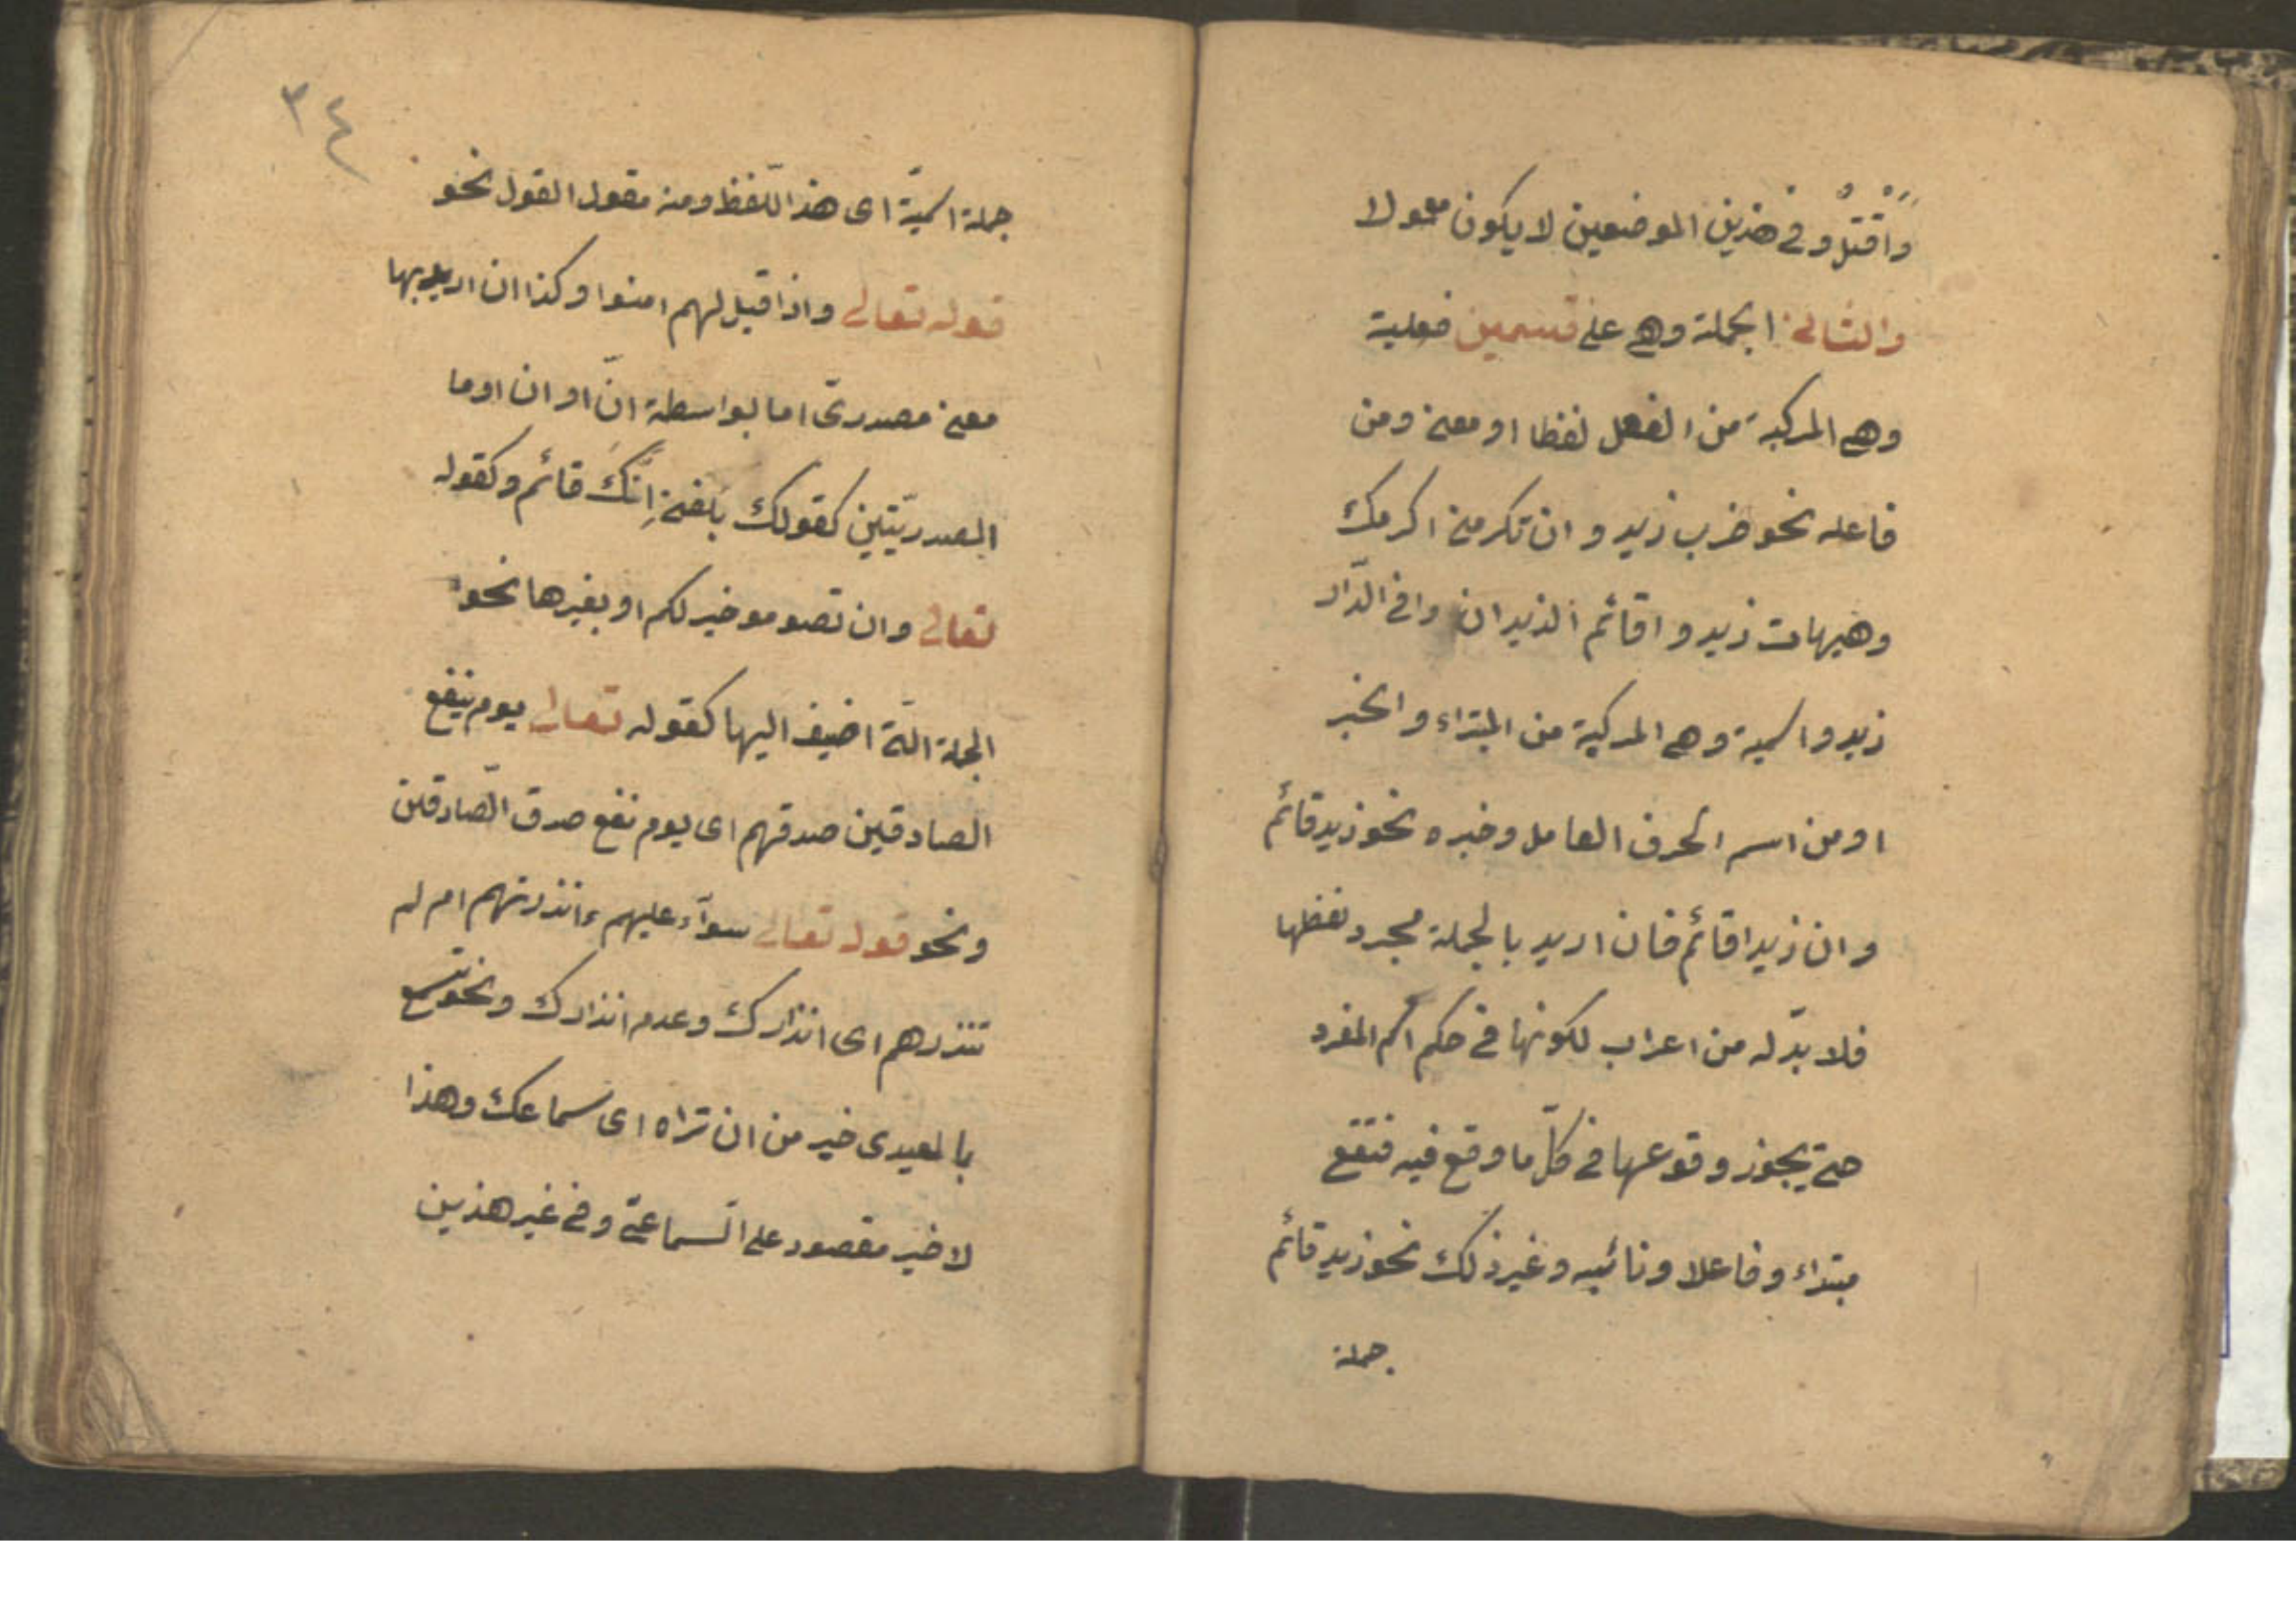 واُقْتُلْ وفى هذين الموضعين لا يكون معمولا
والثانى الجملة وهى على قسمين فعلية
وهى المركبة من الفعل لفظا او معنى ومن
فاعله نحو ضرب زيد وان تكرمنى اكرمك
وهيهات زيد واقائم الزيدان وافى الدّار
زيد واسمية وهى المركبة من المبتداء والخبر
او من اسم الحرف العامل وخبره نحو زيد قائم
وان زيدا قائم فان اريد بالجملة مجرد لفظها
فلا بدّ له من اعراب لكونها فى حكم اسم المفرد
حتى يجوز وقوعها فى كلّ ما وقع فيه فتقع
مبتداء وفاعلا ونائبه وغير ذلك نحو زيد قائم
جملة
٣٤
جملة اسميّة اى هذا اللّفظ ومنه مقول القول نحو
قوله تعالى واذا قيل لهم امنوا وكذا ان اريد بها
معنى مصدرىّ اما بواسطة انّ او ان او ما
المصدريّتين كقولك بلغنى اِنَّكَ قائم وكقوله
تعالى وان تصوموا خير لكم او بغيرها نحو
الجملة الّتى اضيف اليها كقوله تعالى يوم ينفع
الصادقين صدقهم اى يوم نفع صدق الصّادقين
ونحو قوله تعالى سوآء عليهم ءانذرتهم ام لم
تنذرهم اى انذارك وعدم انذارك ونحو تسمع
بالمعيدى خير من ان تراه اى سماعك وهذا
لاخير مقصور على السّماعىّ وفى غير هذين